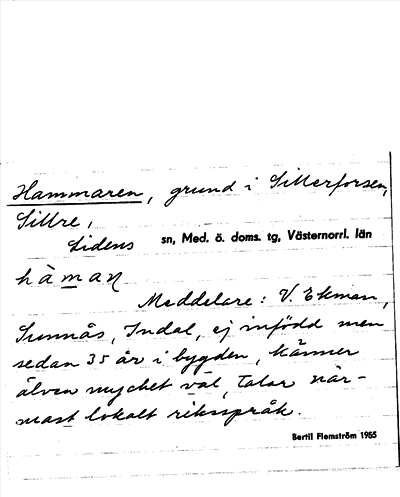 Hammaren, grund i Sillerforsen,
Sillre,
Lidens sn, Med. ö. doms. tg, Västernorrl. län
hàman
Meddelare: V. Ekman,
Sunnås, Indal, ej infödd men
sedan 35 år i bygden, känner
älven mycket väl, talar när-
mast lokalt riksspråk.
Bertil Flemström 1965